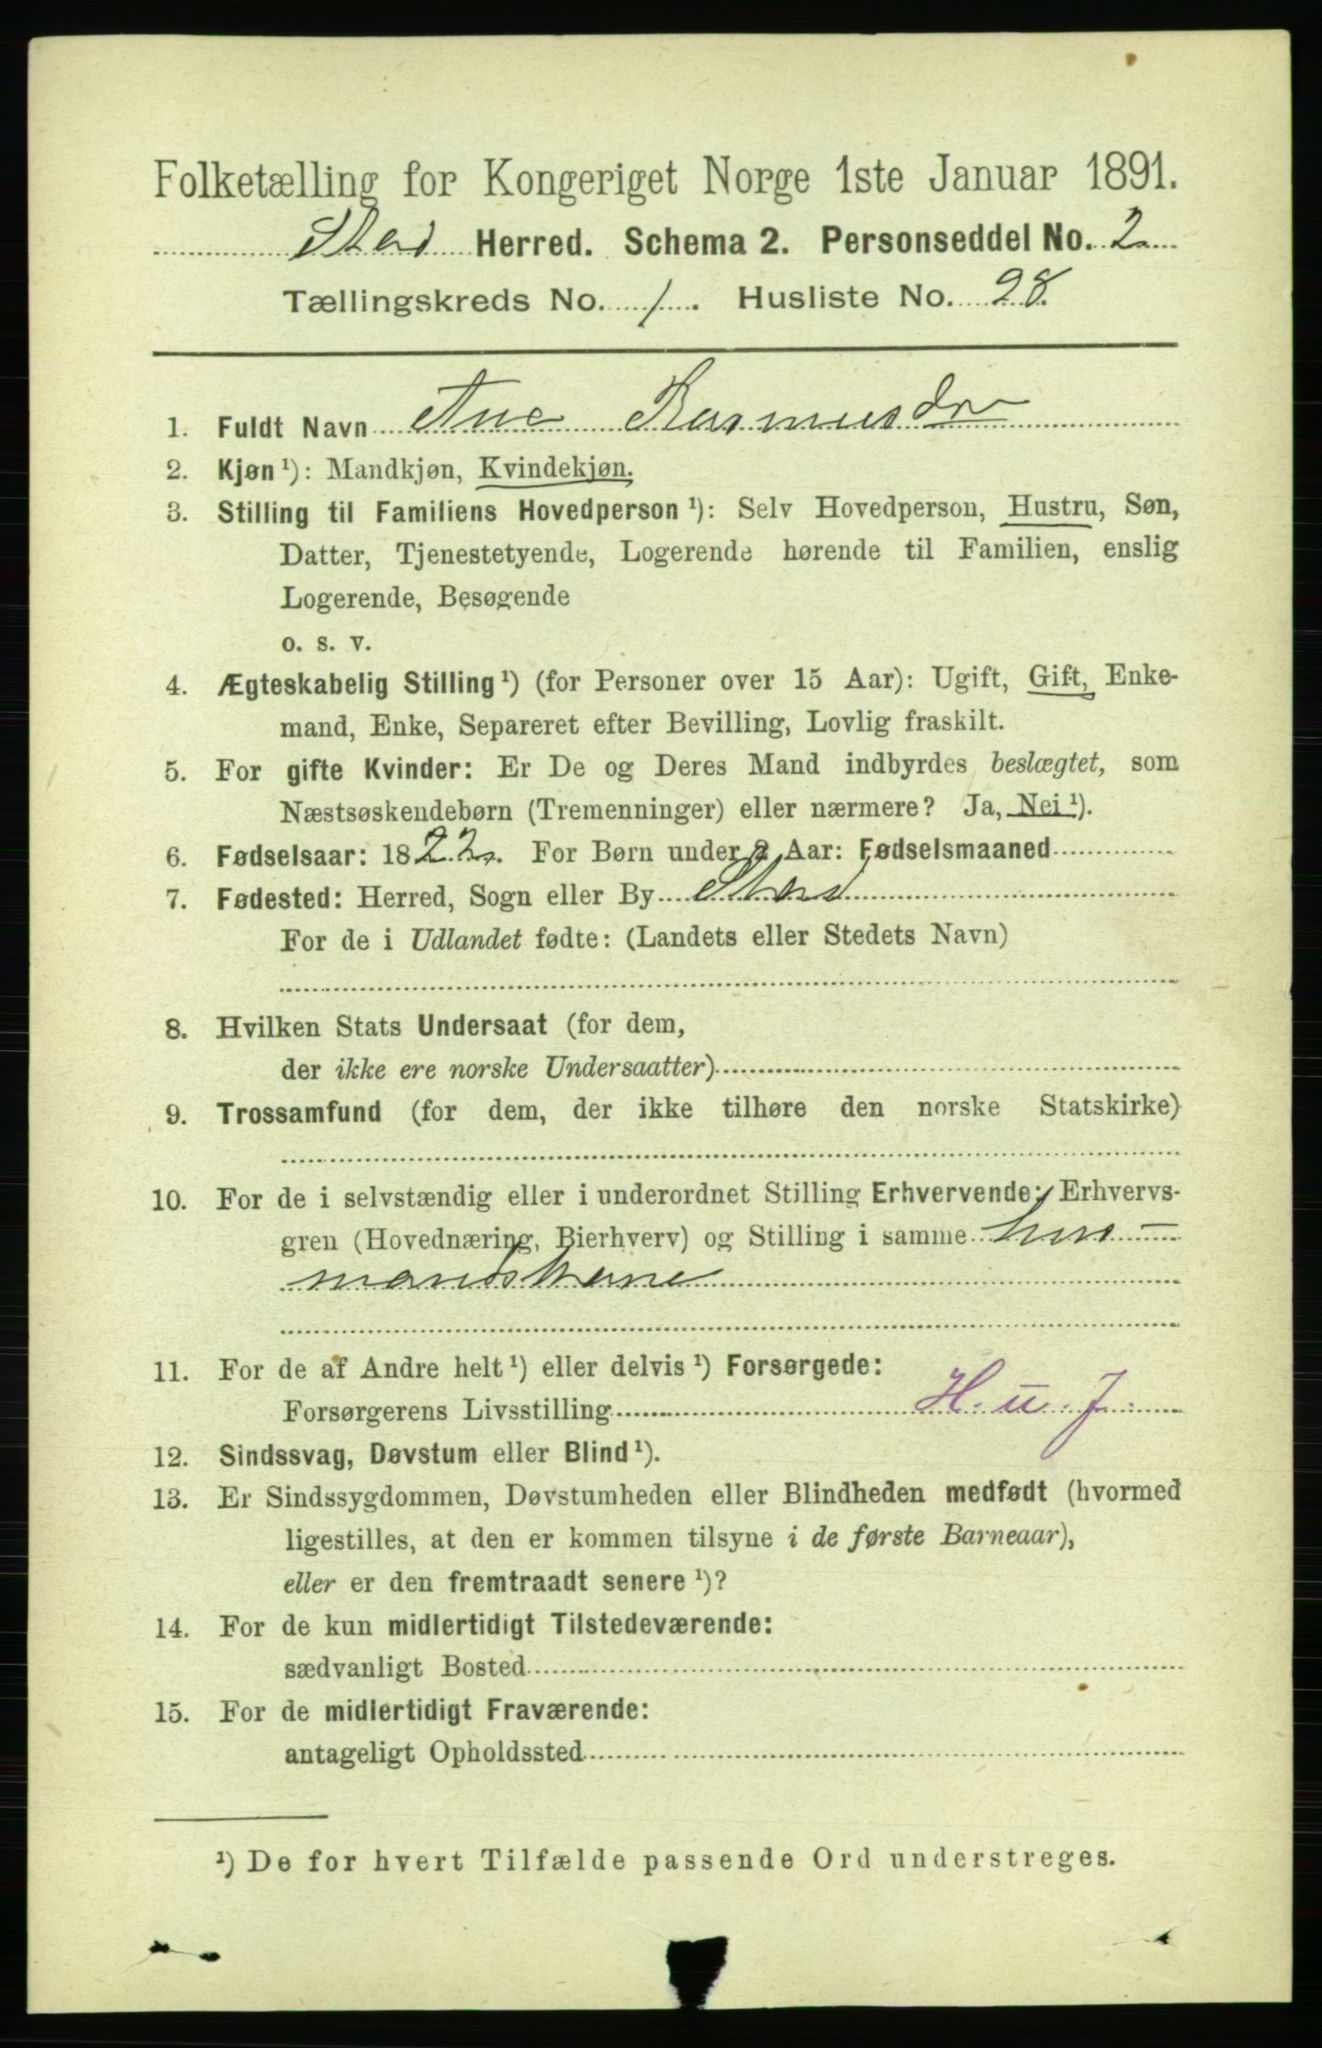 Folketælling for Kongeriget Norge 1ste Januar 1891.
Skov Herred. Schema 2. Personseddel No. 2
Tællingskreds No. 1. Husliste No. 28.
1. Fuldt Navn Ane Rasmusdr
2. Kjøn ¹): Mandkjøn, Kvindekjøn.
3. Stilling til Familiens Hovedperson ¹): Selv Hovedperson, Hustru, Søn,
Datter, Tjenestetyende, Logerende hørende til Familien, enslig
Logerende, Besøgende
o. s. v.
4. Ægteskabelig Stilling ¹) (for Personer over 15 Aar): Ugift, Gift, Enke-
mand, Enke, Separeret efter Bevilling, Lovlig fraskilt.
5. For gifte Kvinder: Er De og Deres Mand indbyrdes beslægtet, som
Næstsøskendebørn (Tremenninger) eller nærmere? Ja, Nei ¹).
6. Fødselsaar: 1822. For Børn under 2 Aar: Fødselsmaaned
7. Fødested: Herred, Sogn eller By
For de i Udlandet fødte: (Landets eller Stedets Navn)
8. Hvilken Stats Undersaat (for dem,
der ikke ere norske Undersaatter)
9. Trossamfund (for dem, der ikke tilhøre den norske Statskirke)
10. For de i selvstændig eller i underordnet Stilling Erhvervende: Erhvervs-
gren (Hovednæring, Bierhverv) og Stilling i samme hus-
mandskone
11. For de af Andre helt ¹) eller delvis ¹) Forsørgede:
Forsørgerens Livsstilling H. u. J.
12. Sindssvag, Døvstum eller Blind ¹).
13. Er Sindssygdommen, Døvstumheden eller Blindheden medfødt (hvormed
ligestilles, at den er kommen tilsyne i de første Barneaar),
eller er den fremtraadt senere ¹)?
14. For de kun midlertidigt Tilstedeværende:
sædvanligt Bosted
15. For de midlertidigt Fraværende:
antageligt Opholdssted
¹) De for hvert Tilfælde passende Ord understreges.